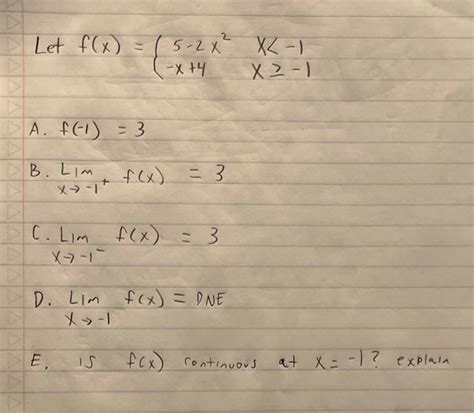 Let f(x) = { 5-2x² x< -1
-x+4 x ≥ -1
A. f(-1) = 3
B. Lim f(x) = 3
x→ -1⁺
C. Lim f(x) = 3
x→ -1⁻
D. Lim f(x) = DNE
x→ -1
E. is f(x) continuous at x = -1? explain